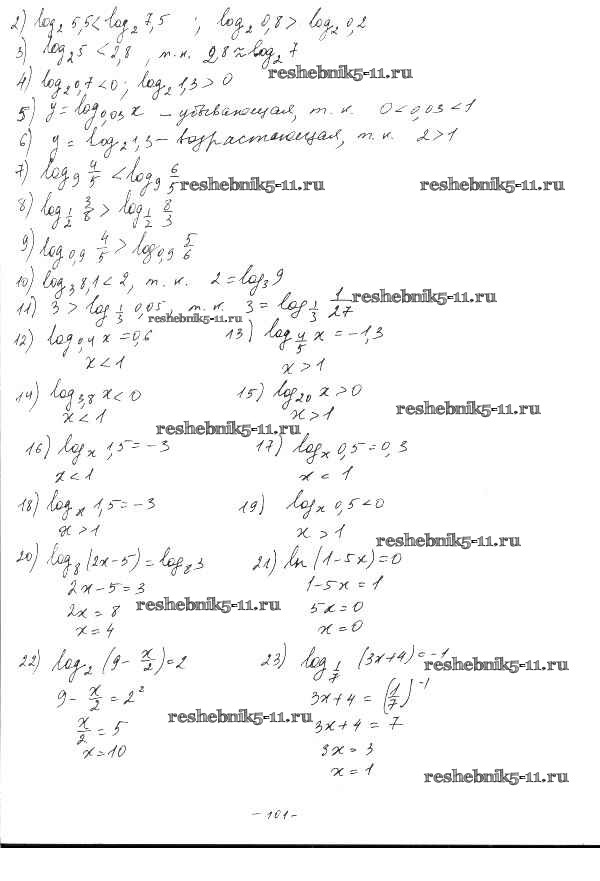 2) log₂ 5,5 < log₂ 7,5 ; log₂ 0,8 > log₂ 0,2
3) log₂ 5 < 2,8 , т.к. 2,8 ≈ log₂ 7
reshebnik5-11.ru
4) log₂ 0,7 < 0; log₂ 1,3 > 0
5) y = log₀,₀₃ x – убывающая, т.к. 0 < 0,03 < 1
6) y = log₂ 1,3 – возрастающая, т.к. 2 > 1
7) log₉ 4/5 < log₉ 6/5
reshebnik5-11.ru reshebnik5-11.ru
8) log_{1/2} 3/8 > log_{1/2} 8/3
9) log₀,₉ 4/5 > log₀,₉ 5/6
10) log₃ 8,1 < 2, т.к. 2 = log₃ 9
11) 3 > log_{1/3} 0,05, т.к. 3 = log_{1/3} 1/27
reshebnik5-11.ru
reshebnik5-11.ru
12) log₀,₄ x = 0,6 13) log_{4/5} x = -1,3
x < 1 x > 1
14) log₃,₈ x < 0 15) log₂₀ x > 0
x < 1 x > 1
reshebnik5-11.ru
reshebnik5-11.ru
16) logₓ 1,5 = -3 17) logₓ 0,5 = 0,3
x < 1 x < 1
18) logₓ 1,5 = -3 19) logₓ 0,5 < 0
x > 1 x > 1
reshebnik5-11.ru
20) log₈ (2x-5) = log₈ 3 21) ln (1-5x) = 0
2x-5 = 3 1-5x = 1
2x = 8 5x = 0
reshebnik5-11.ru
x = 4 x = 0
22) log₂ (9 - x/2) = 2 23) log_{1/7} (3x+4) = -1
reshebnik5-11.ru
9 - x/2 = 2² 3x+4 = (1/7)⁻¹
reshebnik5-11.ru
x/2 = 5 3x+4 = 7
x = 10 3x = 3
x = 1
reshebnik5-11.ru
- 101 -